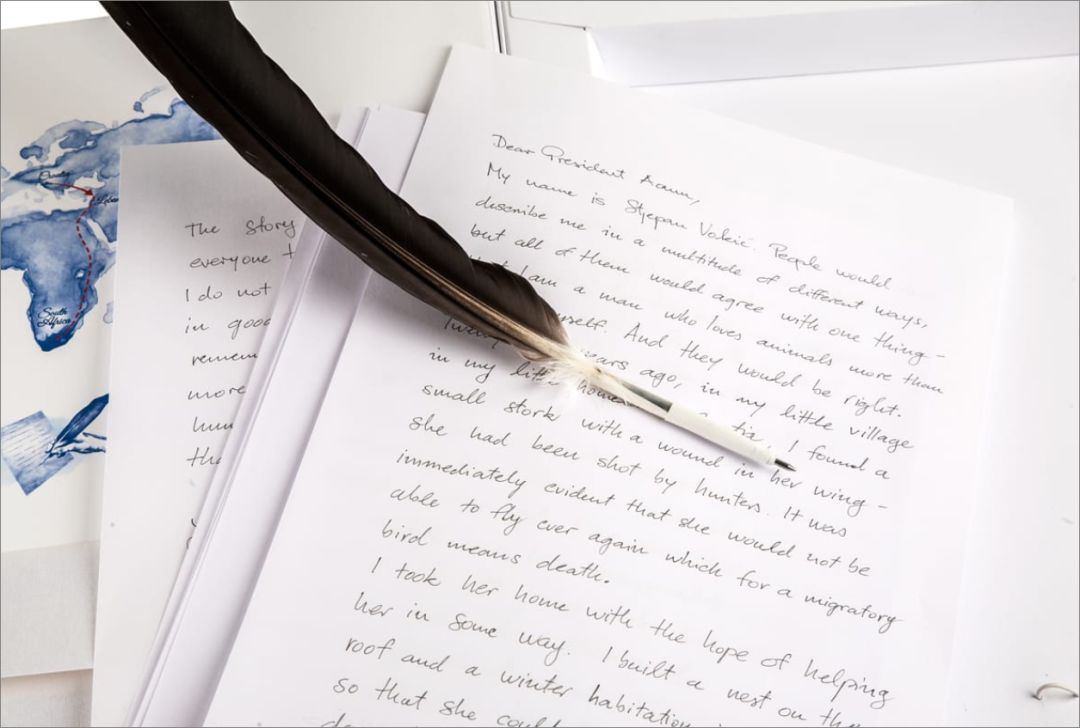 Dear President Aoun,
My name is Stjepan Vokić. People would
describe me in a multitude of different ways,
but all of them would agree with one thing -
I am a man who loves animals more than
myself. And they would be right.
years ago, in my little village
in my little home I found a
small stork with a wound in her wing -
she had been shot by hunters. It was
immediately evident that she would not be
able to fly ever again which for a migratory
bird means death.
I took her home with the hope of helping
her in some way. I built a nest on the
roof and a winter habitation
so that she could
The story
everyone t
I do not
in good
remem
more
hum
tha
Croatia
South
Africa